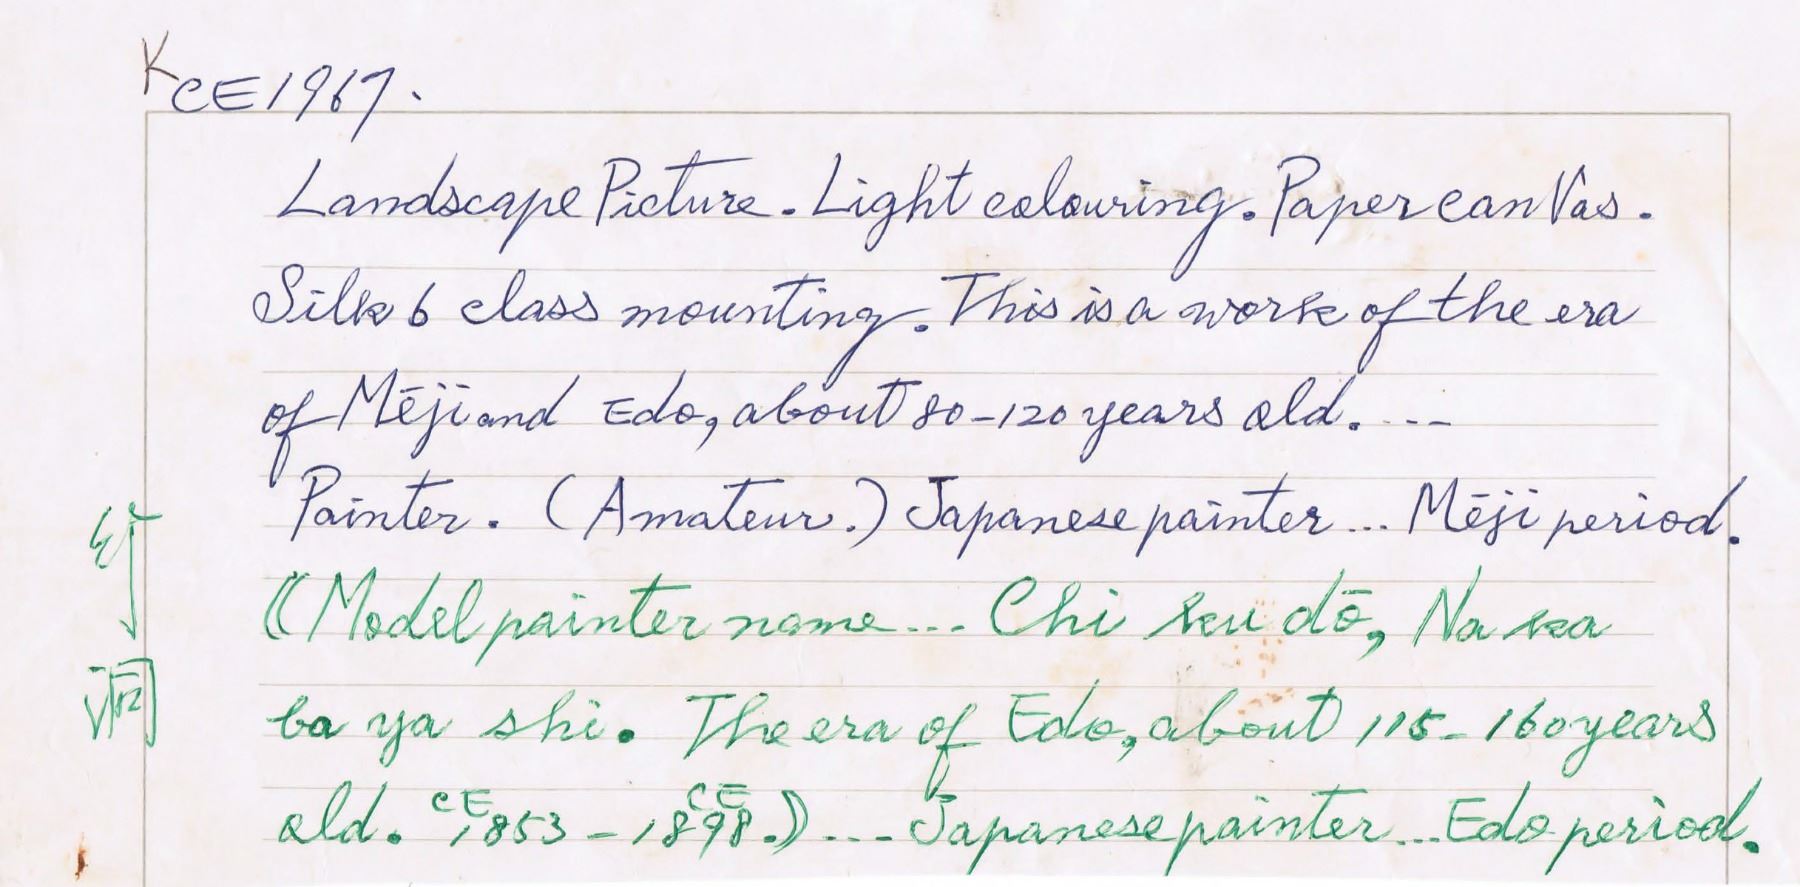 K
CE 1967.
Landscape Picture. Light colouring. Paper canVas.
Silk 6 class mounting. This is a work of the era
of Mēji and Edo, about 80-120 years old. ---
Painter. (Amateur.) Japanese painter... Mēji period.
《Model painter name... Chi ku dō, Na ka
ba ya shi. The era of Edo, about 115-160 years
old. CE 1853 - CE 1898.》--- Japanese painter... Edo period.